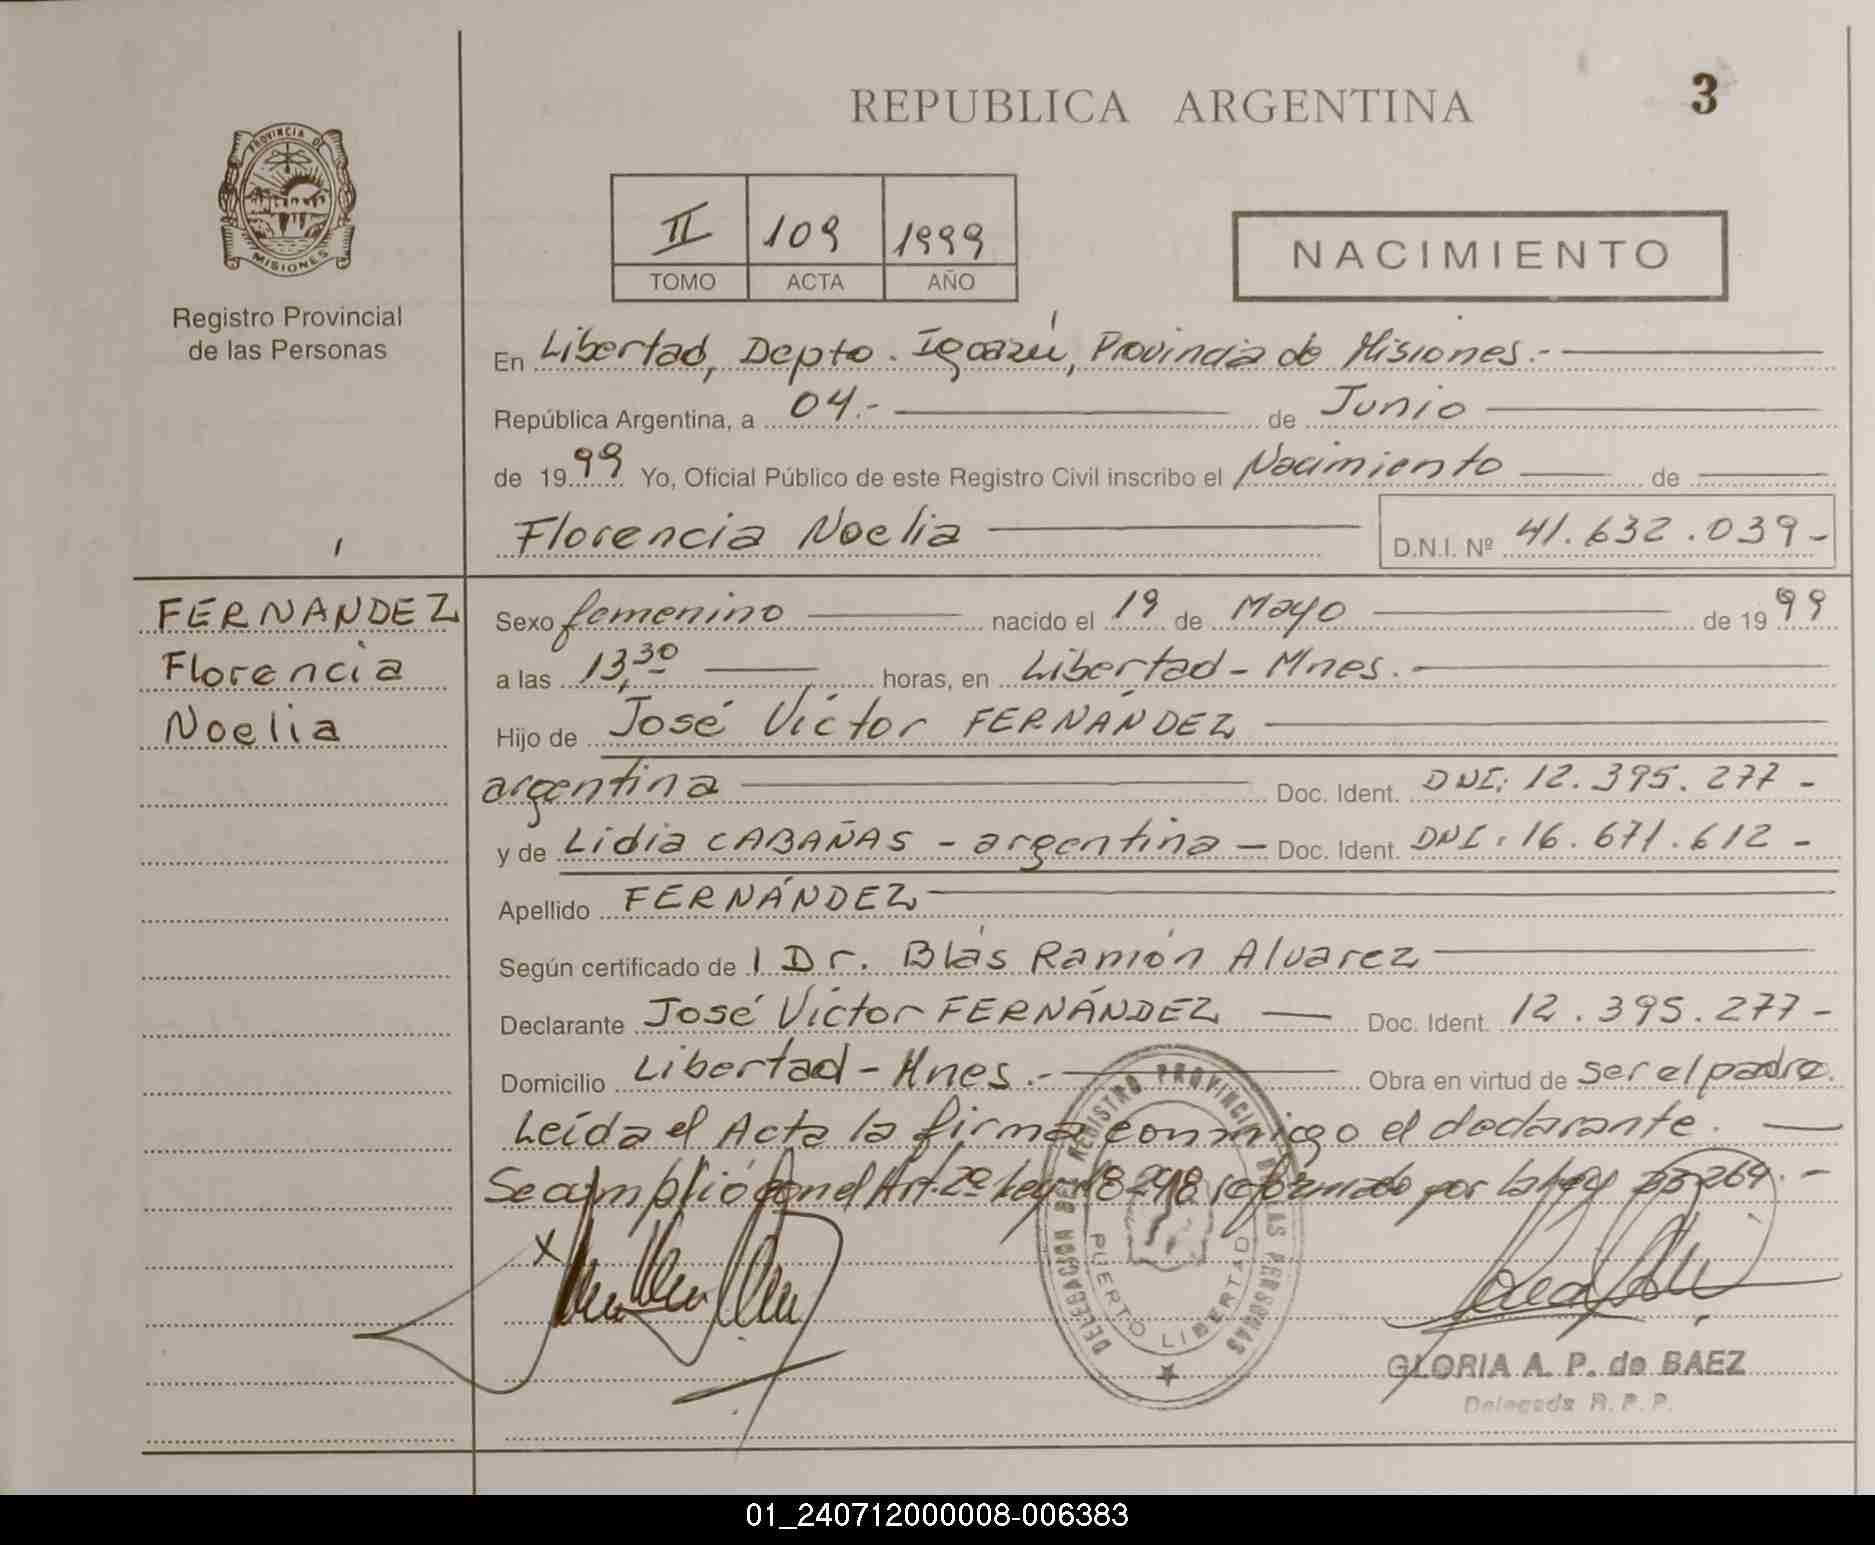 REPUBLICA ARGENTINA
3
PROVINCIA DE
MISIONES
Registro Provincial
de las Personas
II 109 1999
TOMO ACTA AÑO
NACIMIENTO
En Libertad, Depto. Igoazú, Provincia de Misiones.-
República Argentina, a 04.- de Junio
de 1999 Yo, Oficial Público de este Registro Civil inscribo el Nacimiento de
Florencia Noelia D.N.I. Nº 41.632.039-
FERNÁNDEZ
Florencia
Noelia
Sexo femenino nacido el 19 de Mayo de 1999
a las 13,30 horas, en Libertad - Mnes.-
Hijo de José Víctor FERNÁNDEZ
argentina Doc. Ident. DNI: 12.395.277-
y de Lidia CABAÑAS - argentina - Doc. Ident. DNI: 16.671.612-
Apellido FERNÁNDEZ
Según certificado de l Dr. Blás Ramón Alvarez
Declarante José Víctor FERNÁNDEZ Doc. Ident. 12.395.277-
Domicilio Libertad - Mnes.- Obra en virtud de ser el padre.
Leída el Acta la firma conmigo el declarante.
Se cumplió con el Art. 2º Ley 18.248 reformado por la ley 23264.-
X
DELEGACION DEL REGISTRO PROVINCIAL DE LAS PERSONAS
PUERTO LIBERTAD
GLORIA A. P. de BAEZ
Delegada R. P. P.
01_240712000008-006383